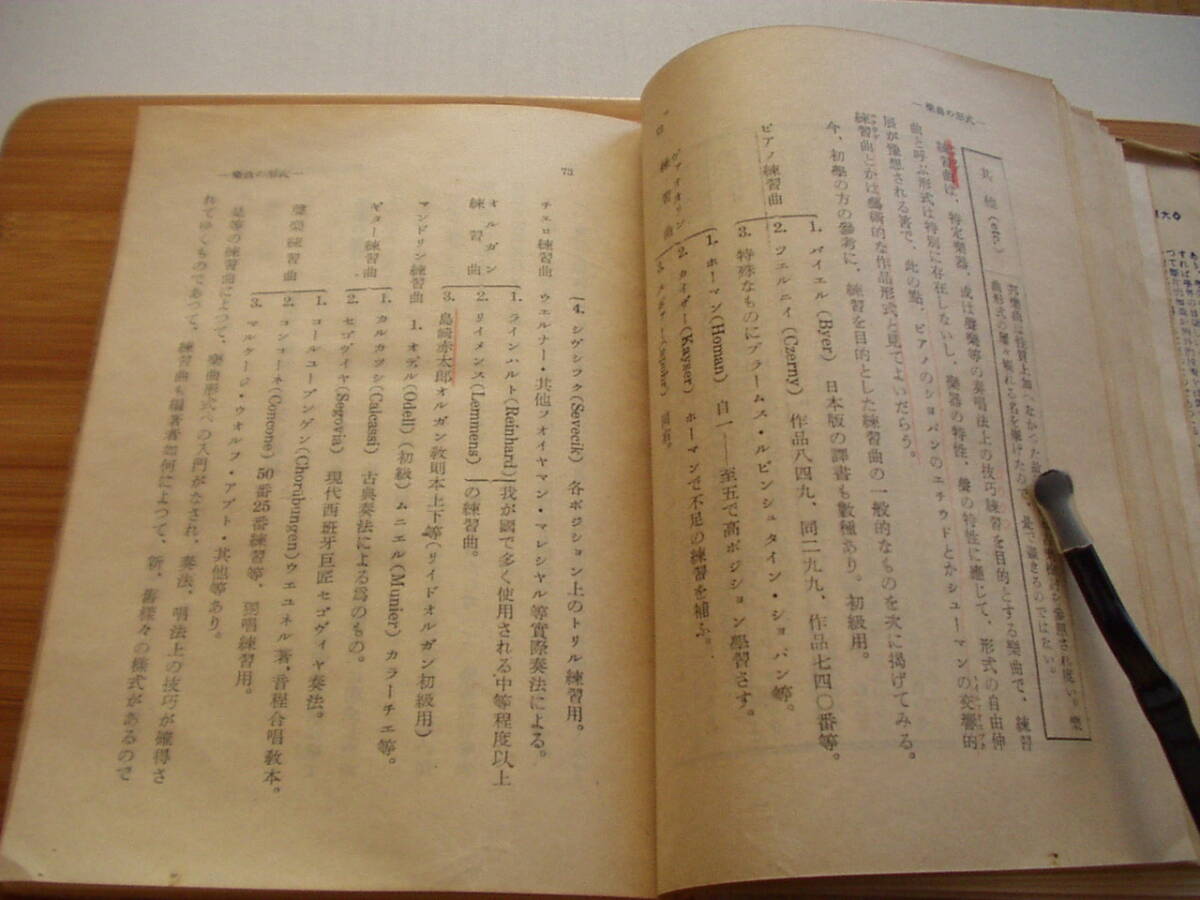 —樂曲の形式—
其他(etc.)
練習曲は、特定樂器、或は聲樂等の奏唱法上の技巧練習を目的とする樂曲で、練習
曲と呼ぶ形式は特別に存在しないし、樂器の特性、聲の特性に應じて、形式の自由伸
展が豫想される筈で、此の點、ピアノのショパンのエチウドとかシューマンの交響的
練習曲とかは藝術的な作品形式と見てよいだらう。
今、初學の方の參考に、練習を目的とした練習曲の一般的なものを次に掲げてみる。
ピアノ練習曲
1. バイエル(Byer) 日本版の譯書も數種あり。初級用。
2. ツエルニイ(Czerny) 作品八四九、同二九九、作品七四〇番等。
3. 特殊なものにブラームス・ルビンシュタイン・ショパン等。
ヴァイオリン練習曲
1. ホーマン(Homan) 自一——至五で高ポジション學習さす。
2. カイザー(Kayser) ホーマンで不足の練習を補ふ。
73
—樂曲の形式—
4. シヴシフク(Sevecik) 各ポジション上のトリル練習用。
チエロ練習曲 ウエルナー・其他フオイヤマン・マレシヤル等實際奏法による。
オルガン練習曲
1. ラインハルト(Reinhard) 我が國で多く使用される中等程度以上
2. リイメンス(Lemmens) の練習曲。
3. 島崎赤太郎オルガン教則本上下等(リイドオルガン初級用)
マンドリン練習曲 1. オデル(Odell)(初級)ムニエル(Munier)カラーチエ等。
ギター練習曲
1. カルカツシ(Calcassi) 古典奏法による爲のもの。
2. セゴヴイヤ(Segovia) 現代西班牙巨匠セゴヴイヤ奏法。
聲樂練習曲
1. コールユーブンゲン(Chorubungen)ウエルネル著・音程合唱教本。
2. コンコーネ(Concone) 50番25番練習等、獨唱練習用。
3. マルケージ・ウオルフ・アプト・其他等あり。
是等の練習曲によつて、樂曲形式への入門がなされ、奏法、唱法上の技巧が確得さ
れてゆくものであつて、練習曲も編著者如何によつて、新、舊樣々の樣式があるので